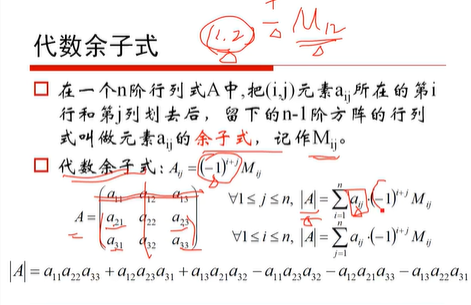 (1,2) + M₁₂
代数余子式
在一个n阶行列式A中,把(i,j)元素aᵢⱼ所在的第i
行和第j列划去后，留下的n-1阶方阵的行列
式叫做元素aᵢⱼ的余子式，记作Mᵢⱼ。
代数余子式: Aᵢⱼ = (-1)ⁱ⁺ʲ Mᵢⱼ
a₁₁ a₁₂ a₁₃ ∀1 ≤ j ≤ n, |A| = ∑ᵢ₌₁ⁿ aᵢⱼ · (-1)ⁱ⁺ʲ Mᵢⱼ
A = a₂₁ a₂₂ a₂₃
a₃₁ a₃₂ a₃₃ ∀1 ≤ i ≤ n, |A| = ∑ⱼ₌₁ⁿ aᵢⱼ · (-1)ⁱ⁺ʲ Mᵢⱼ
|A| = a₁₁a₂₂a₃₃ + a₁₂a₂₃a₃₁ + a₁₃a₂₁a₃₂ − a₁₁a₂₃a₃₂ − a₁₂a₂₁a₃₃ − a₁₃a₂₂a₃₁